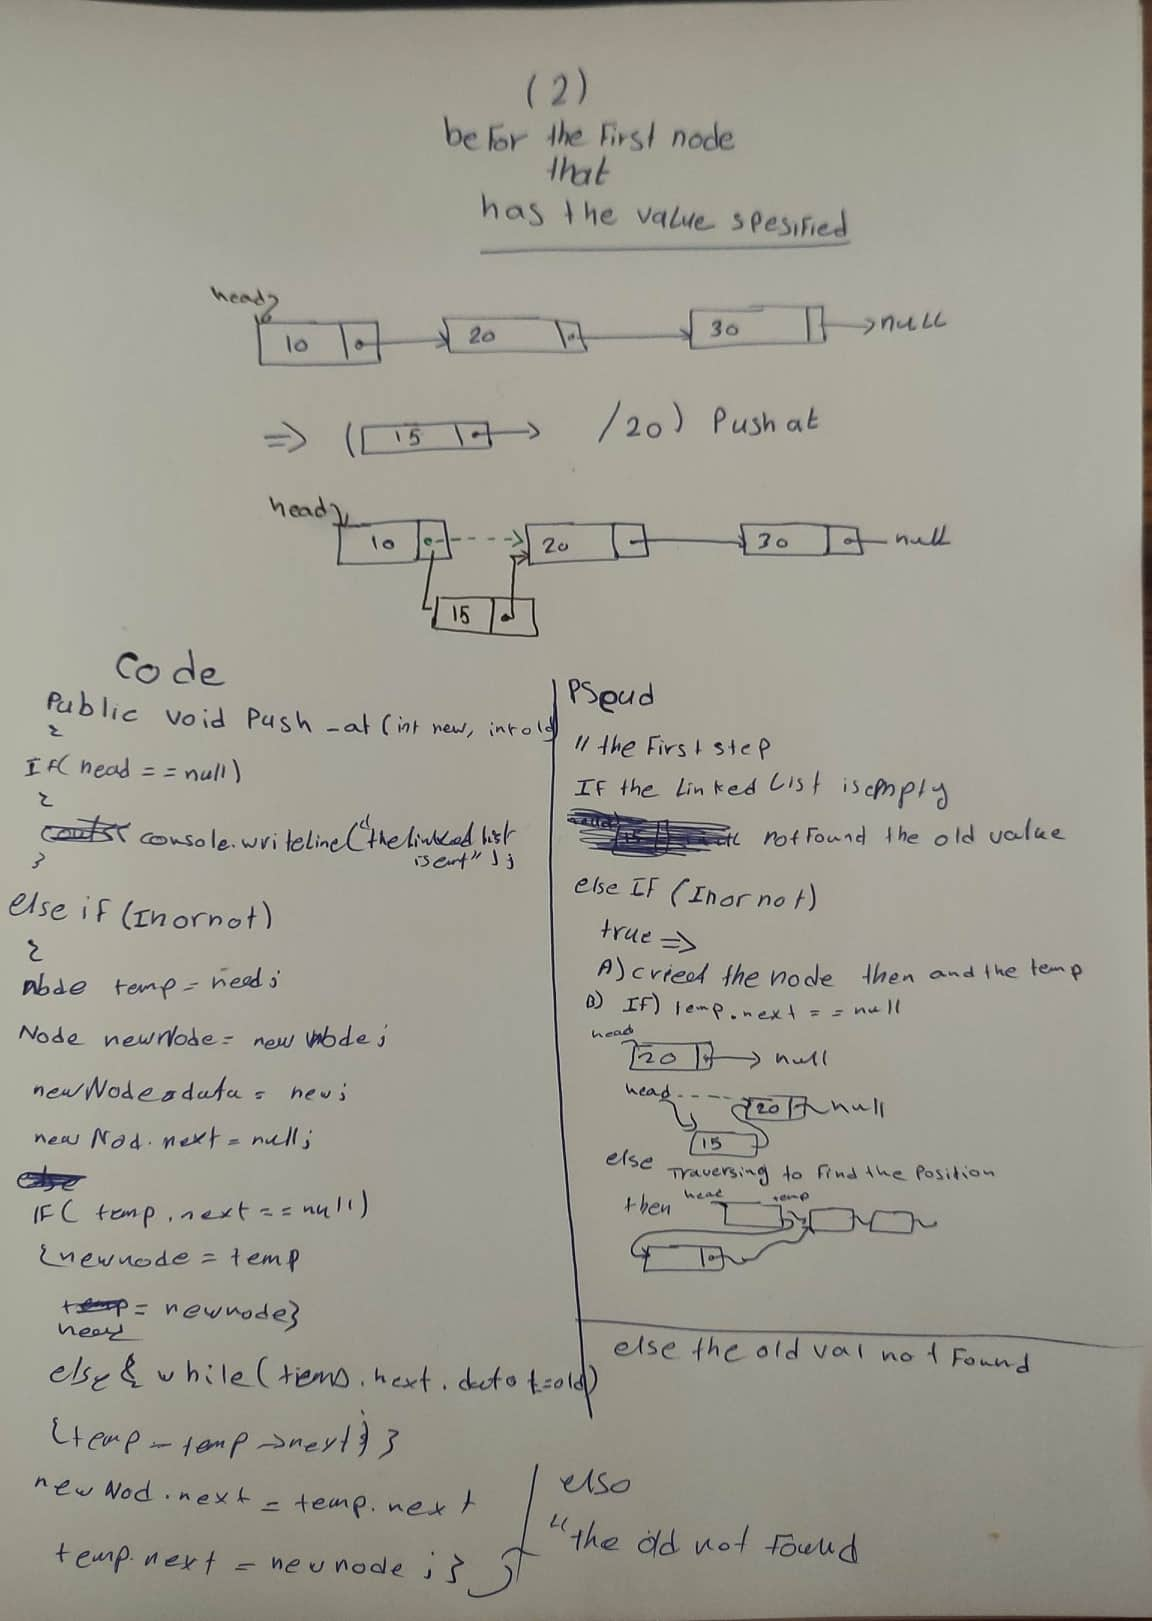 (2)
befor the first node
that
has the value spesified
head
10 20 30 null
=> ( 15 /20) Push at
head
10 20 30 null
15
Code
Public void Push_at (int new, int old)
{
If( head == null)
{
console.writeline("the linked list
is emt");
}
else if (Inornot)
{
Node temp = head;
Node newNode = new Node;
newNode.data = new;
new Nod.next = null;
IF( temp.next == null)
{newnode = temp
head = newnode}
else { while( temp.next.data != old)
{temp = temp->next;} }
new Nod.next = temp.next
temp.next = newnode ; }
PSeud
// the First step
IF the Linked List is empty
not found the old value
else IF (Inornot)
true =>
A) the node then and the temp
B) IF) temp.next == null
head
20 null
head
20 null
15
else Traversing to find the Position
then head temp
else the old val not Found
else
"the old not Found